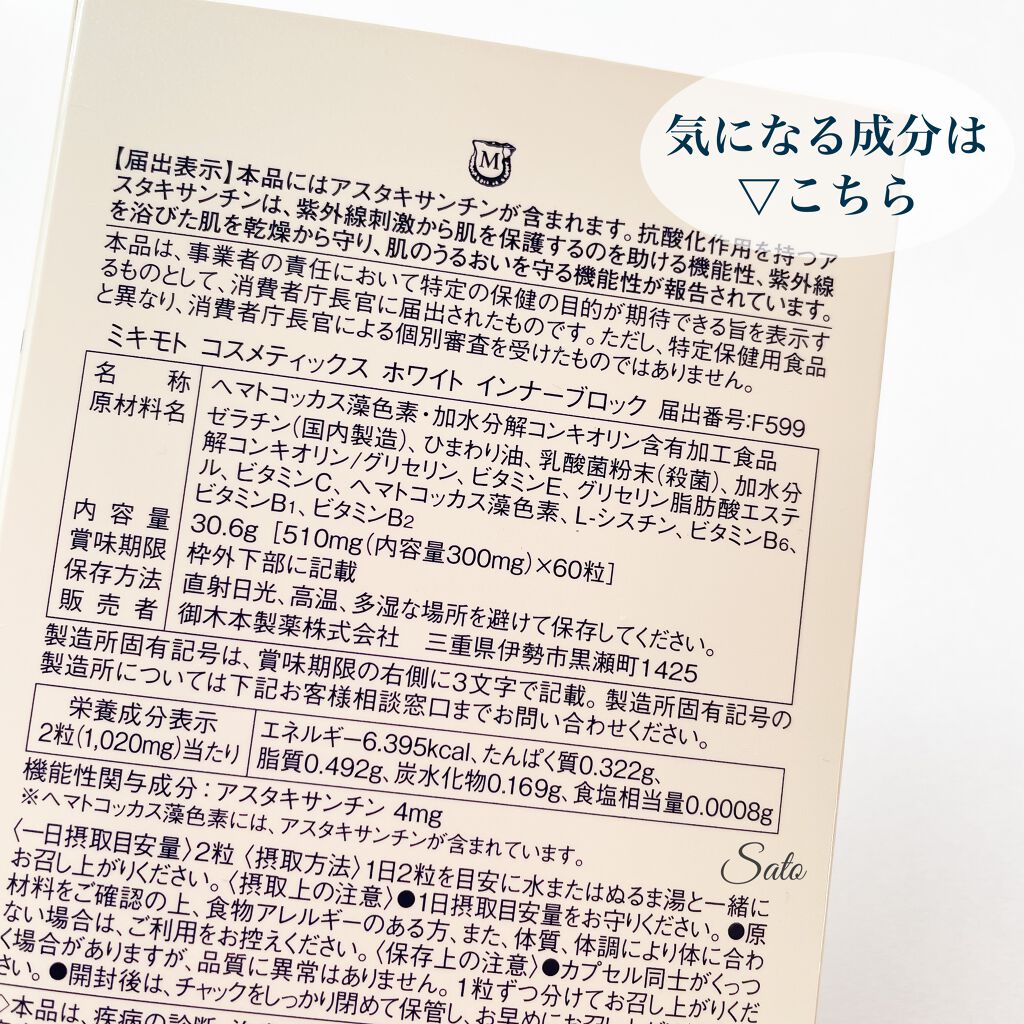 気になる成分は
▽こちら
M
【届出表示】本品にはアスタキサンチンが含まれます。抗酸化作用を持つア
スタキサンチンは、紫外線刺激から肌を保護するのを助ける機能性、紫外線
を浴びた肌を乾燥から守り、肌のうるおいを守る機能性が報告されています。
本品は、事業者の責任において特定の保健の目的が期待できる旨を表示す
るものとして、消費者庁長官に届出されたものです。ただし、特定保健用食品
と異なり、消費者庁長官による個別審査を受けたものではありません。
ミキモト コスメティックス ホワイト インナーブロック 届出番号:F599
名称 ヘマトコッカス藻色素・加水分解コンキオリン含有加工食品
原材料名 ゼラチン(国内製造)、ひまわり油、乳酸菌粉末(殺菌)、加水分
解コンキオリン/グリセリン、ビタミンE、グリセリン脂肪酸エステ
ル、ビタミンC、ヘマトコッカス藻色素、L-シスチン、ビタミンB6、
ビタミンB1、ビタミンB2
内容量 30.6g [510mg(内容量300mg)×60粒]
賞味期限 枠外下部に記載
保存方法 直射日光、高温、多湿な場所を避けて保存してください。
販売者 御木本製薬株式会社 三重県伊勢市黒瀬町1425
製造所固有記号は、賞味期限の右側に3文字で記載。製造所固有記号の
製造所については下記お客様相談窓口までお問い合わせください。
栄養成分表示
2粒(1,020mg)当たり
エネルギー6.395kcal、たんぱく質0.322g、
脂質0.492g、炭水化物0.169g、食塩相当量0.0008g
機能性関与成分:アスタキサンチン 4mg
※ヘマトコッカス藻色素には、アスタキサンチンが含まれています。
〈一日摂取目安量〉2粒 〈摂取方法〉1日2粒を目安に水またはぬるま湯と一緒に
お召し上がりください。〈摂取上の注意〉●1日摂取目安量をお守りください。●原
材料をご確認の上、食物アレルギーのある方、また、体質、体調により体に合わ
ない場合は、ご利用をお控えください。〈保存上の注意〉●カプセル同士がくっつ
く場合がありますが、品質に異常はありません。1粒ずつ分けてお召し上がりくだ
さい。●開封後は、チャックをしっかり閉めて保管し、お早めにお召し上がりくだ
〉本品は、疾病の診断、
Sato